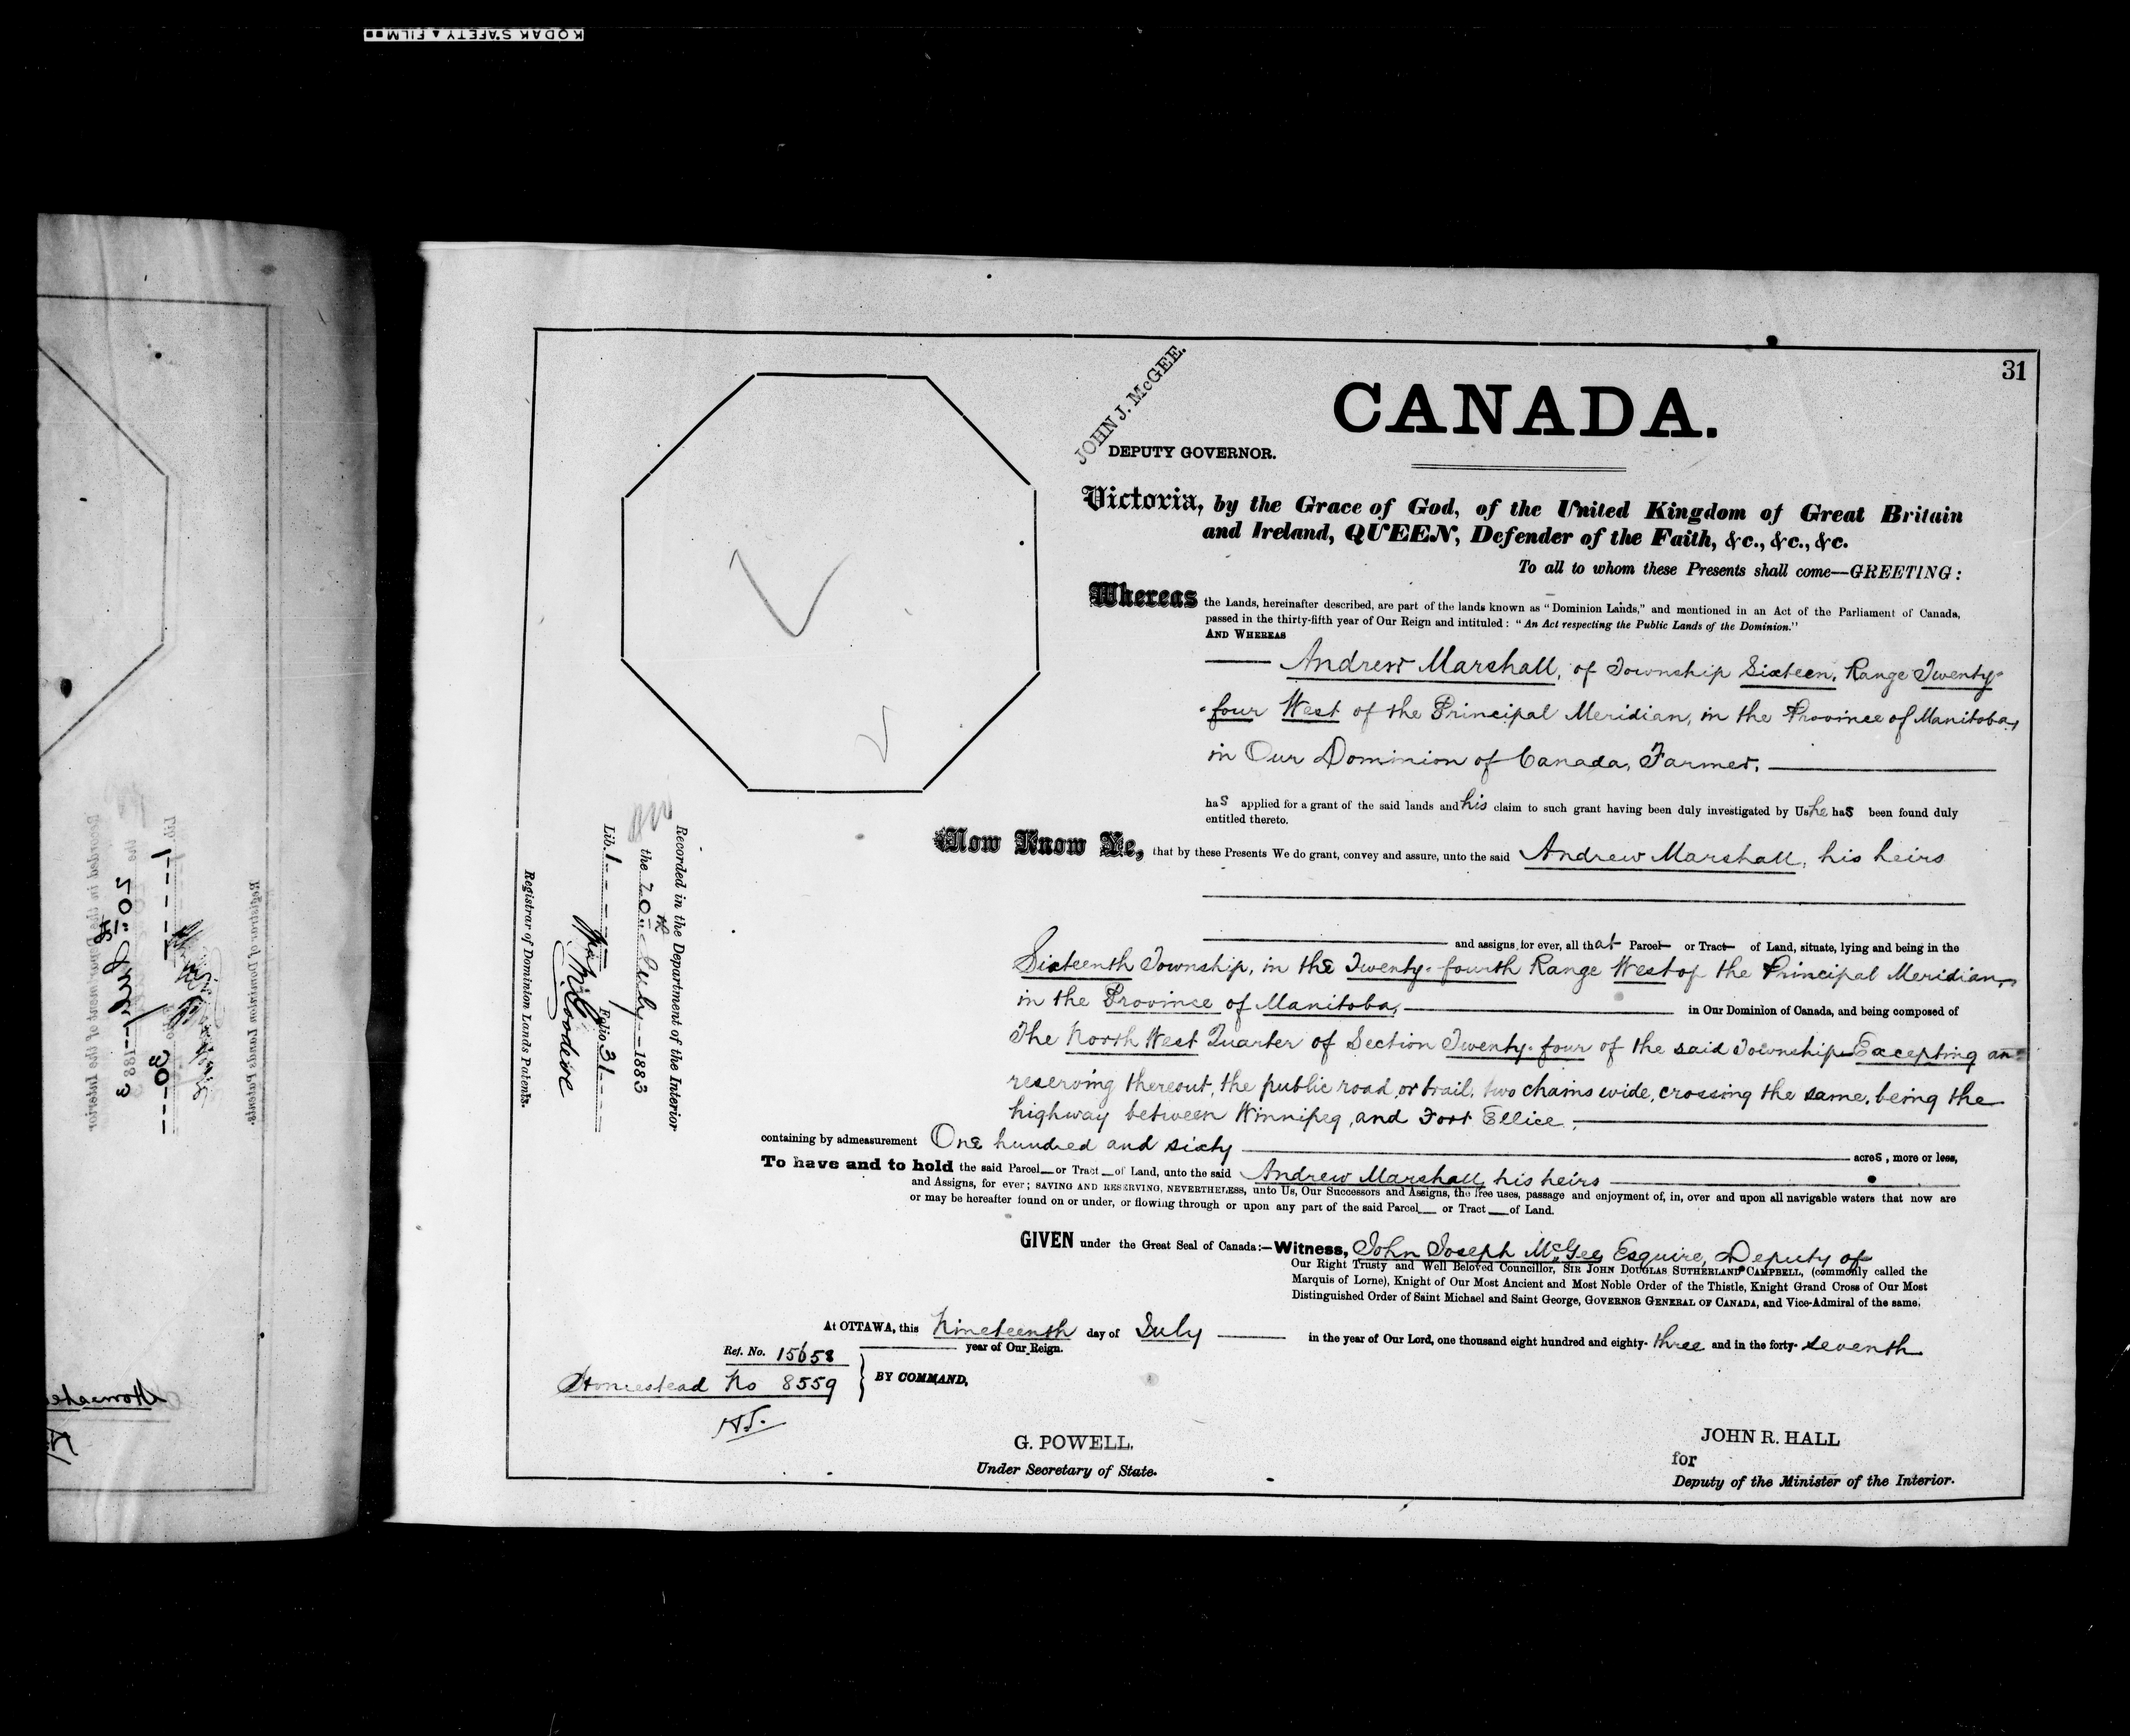 KODAK SAFETY ▲ FILM
31
JOHN J. McGEE.
DEPUTY GOVERNOR.
CANADA.
Victoria, by the Grace of God, of the United Kingdom of Great Britain
and Ireland, QUEEN, Defender of the Faith, &c., &c., &c.
To all to whom these Presents shall come—GREETING:
Whereas the Lands, hereinafter described, are part of the lands known as "Dominion Lands," and mentioned in an Act of the Parliament of Canada,
passed in the thirty-fifth year of Our Reign and intituled: "An Act respecting the Public Lands of the Dominion."
AND WHEREAS
Andrew Marshall, of Township Sixteen, Range Twenty-
-four West of the Principal Meridian, in the Province of Manitoba,
in Our Dominion of Canada, Farmer,
has applied for a grant of the said lands and his claim to such grant having been duly investigated by Us he has been found duly
entitled thereto.
Now Know Ye, that by these Presents We do grant, convey and assure, unto the said Andrew Marshall, his heirs
and assigns for ever, all that Parcel or Tract of Land, situate, lying and being in the
Sixteenth Township, in the Twenty-fourth Range West of the Principal Meridian,
in the Province of Manitoba, in Our Dominion of Canada, and being composed of
The North West Quarter of Section Twenty-four of the said Township Excepting an
reserving thereout, the public road, or trail, two chains wide, crossing the same, being the
highway between Winnipeg, and Fort Ellice,
containing by admeasurement One hundred and sixty acres, more or less,
To have and to hold the said Parcel or Tract of Land, unto the said Andrew Marshall, his heirs
and Assigns, for ever; SAVING AND RESERVING, NEVERTHELESS, unto Us, Our Successors and Assigns, the free uses, passage and enjoyment of, in, over and upon all navigable waters that now are
or may be hereafter found on or under, or flowing through or upon any part of the said Parcel or Tract of Land.
GIVEN under the Great Seal of Canada:—Witness, John Joseph McGee Esquire, Deputy of
Our Right Trusty and Well Beloved Councillor, SIR JOHN DOUGLAS SUTHERLAND CAMPBELL, (commonly called the
Marquis of Lorne), Knight of Our Most Ancient and Most Noble Order of the Thistle, Knight Grand Cross of Our Most
Distinguished Order of Saint Michael and Saint George, GOVERNOR GENERAL OF CANADA, and Vice-Admiral of the same.
At OTTAWA, this Nineteenth day of July in the year of Our Lord, one thousand eight hundred and eighty-three and in the forty-seventh
year of Our Reign.
Ref. No. 15658
Homestead No 8559
BY COMMAND,
G. POWELL,
Under Secretary of State.
JOHN R. HALL
for
Deputy of the Minister of the Interior.
Recorded in the Department of the Interior
the 20th July 1883
Lib. 1 Folio 31
Registrar of Dominion Lands Patents.
Recorded in the Department of the Interior
the 20th July 1883
Lib. 1 30
Registrar of Dominion Lands Patents.